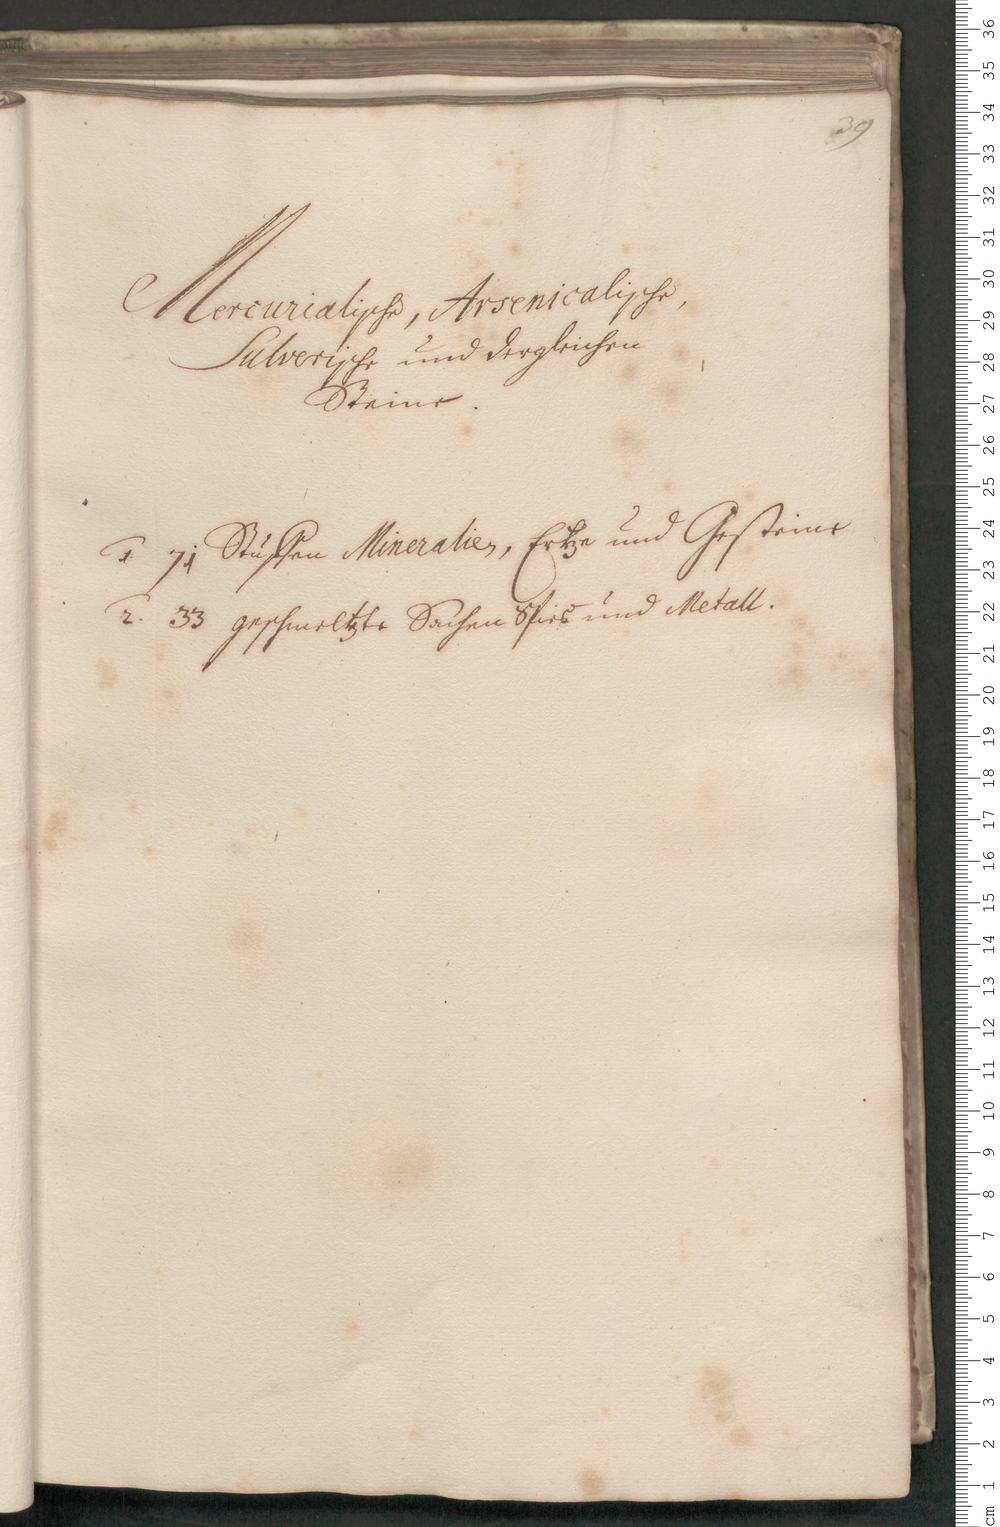 39
Mercurialische, Arsenicalische,
Sulverische und dergleichen
Steine.
1. 71 Stuffen Mineralien, Ertze und Gesteine
2. 33 geschmeltzte Sachen und Metall.
36
35
34
33
32
31
30
29
28
27
26
25
24
23
22
21
20
19
18
17
16
15
14
13
12
11
10
9
8
7
6
5
4
3
2
1
cm